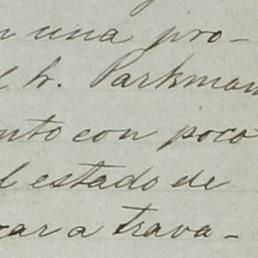 n una pro-
l h. Parkman
nto con poco
l estado de
car a trava-